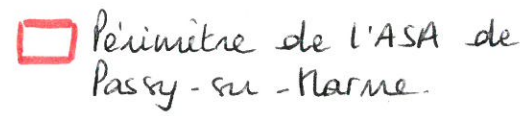 Périmètre de l'ASA de
Passy-su-Marne.